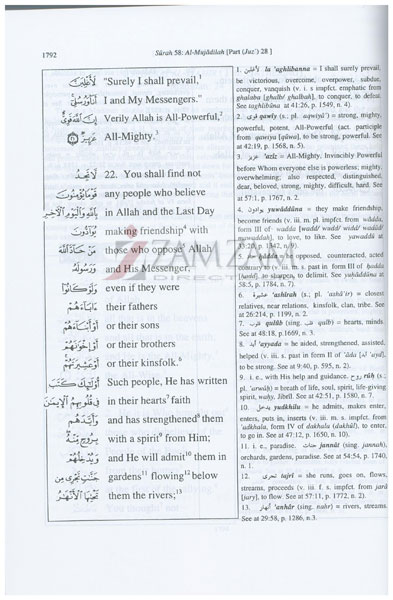 1792
Sūrah 58: Al-Mujādilah [Part (Juz') 28 ]
لَأَغْلِبَنَّ "Surely I shall prevail,¹
أَنَا۠ وَرُسُلِىٓ I and My Messengers."
إِنَّ ٱللَّهَ قَوِىٌّ Verily Allah is All-Powerful,²
عَزِيزٌ All-Mighty.³
لَّا تَجِدُ 22. You shall find not
قَوْمًا يُؤْمِنُونَ any people who believe
بِٱللَّهِ وَٱلْيَوْمِ ٱلْأَخِرِ in Allah and the Last Day
يُوَآدُّونَ making friendship⁴ with
مَنْ حَآدَّ ٱللَّهَ those who oppose⁵ Allah
وَرَسُولَهُۥ and His Messenger,
وَلَوْ كَانُوٓا۟ even if they were
ءَابَآءَهُمْ their fathers
أَوْ أَبْنَآءَهُمْ or their sons
أَوْ إِخْوَٰنَهُمْ or their brothers
أَوْ عَشِيرَتَهُمْ or their kinsfolk.⁶
أُو۟لَٰٓئِكَ كَتَبَ Such people, He has written
فِى قُلُوبِهِمُ ٱلْإِيمَٰنَ in their hearts⁷ faith
وَأَيَّدَهُم and has strengthened⁸ them
بِرُوحٍ مِّنْهُ with a spirit⁹ from Him;
وَيُدْخِلُهُمْ and He will admit¹⁰ them in
جَنَّٰتٍ تَجْرِى مِن gardens¹¹ flowing¹² below
تَحْتِهَا ٱلْأَنْهَٰرُ them the rivers;¹³
1. لأغلبن la 'aghlibanna = I shall surely prevail,
be victorious, overcome, overpower, subdue,
conquer, vanquish (v. i. s. impfct. emphatic from
ghalaba [ghalb/ ghalbah], to conquer, to defeat.
See taghlibûna at 41:26, p. 1549, n. 4).
2. قوى qawiy (s. pl. 'aqwiyâ') = strong, mighty,
powerful, potent, All-Powerful (act. participle
from qawiya [qûwa], to be strong, powerful. See
at 42:19, p. 1568, n. 5).
3. عزيز 'azîz = All-Mighty, Invincibly Powerful
before Whom everyone else is powerless; mighty,
overwhelming; also respected, distinguished,
dear, beloved, strong, mighty, difficult, hard. See
at 57:1, p. 1767, n. 2.
4. يوادون yuwâddûna = they make friendship,
become friends (v. iii. m. pl. impfct. from wâdda,
form III of wadda [wadd/ wudd/ widd/ wadâd/
mawaddah], to love, to like. See yawaddu at
33:20, p. 1342, n. 9).
5. حاد hâdda = opposed, counteracted, acted
contrary to (v. iii. m. s. past in form III of hadda
[hadd], to sharpen, to delimit. See yuhâddûna at
58:5, p. 1784, n. 7).
6. عشيرة 'ashîrah (s.; pl. 'ashâ'ir) = closest
relatives, near relations, kinsfolk, clan, tribe. See
at 26:214, p. 1199, n. 2.
7. قلوب qulûb (sing. قلب qalb) = hearts, minds.
See at 48:18, p. 1669, n. 3.
8. أيد 'ayyada = he aided, strengthened, assisted,
helped (v. iii. s. past in form II of 'âda [ 'ayd],
to be strong. See at 9:40, p. 595, n. 2).
9. i. e., with His help and guidance. روح rûh (s.;
pl. 'arwâh) = breath of life, soul, spirit, life-giving
spirit, wahy, Jibrîl. See at 42:51, p. 1580, n. 7.
10. يدخل yudkhilu = he admits, makes enter,
enters, puts in, inserts (v. iii. m. s. impfct. from
'adkhala, form IV of dakhala [dukhûl], to enter,
to go in. See at 47:12, p. 1650, n. 10).
11. i. e., paradise. جنات jannât (sing. jannah),
orchards, gardens, paradise. See at 54:54, p. 1740,
n. 1.
12. تجرى tajrî = she runs, goes on, flows,
streams, proceeds (v. iii. f. s. impfct. from jarâ
[jary], to flow. See at 57:11, p. 1772, n. 2).
13. أنهار 'anhâr (sing. nahr) = rivers, streams.
See at 29:58, p. 1286, n. 3.
ZAMZAM
DIRECT